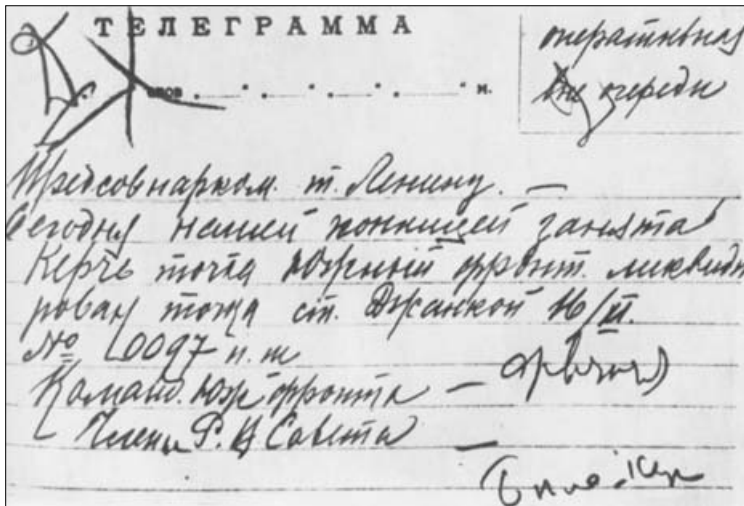 ТЕЛЕГРАММА
оперативная
вне очереди
слов
Предсовнарком. т. Ленину. —
Сегодня нашей конницей занята
Керчь точка Южный фронт ликвиди
рован точка ст. Джанкой 16/II.
№ 0097 п.ш
Команд. Юж фронта —
Члены Р. В Совета —